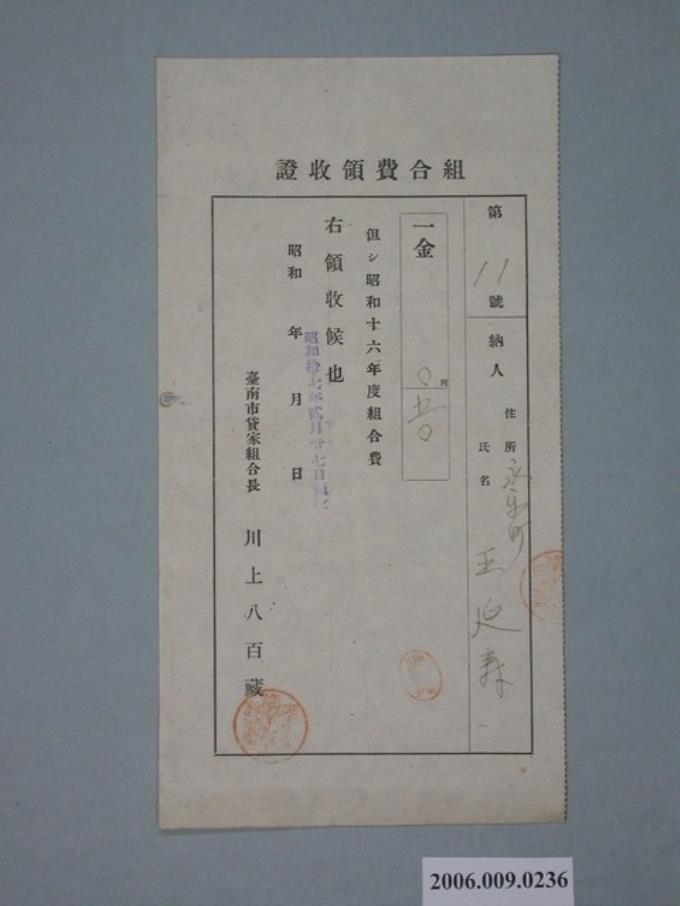 組合費領收證
第 11 號
納人 住所 永樂町
氏名 王延壽
一金 0円五0
但シ昭和十六年度組合費
右領收候也
昭和 年 月 日
昭和拾七年貳月廿七日
臺南市貸家組合長 川上八百藏
2006.009.0236